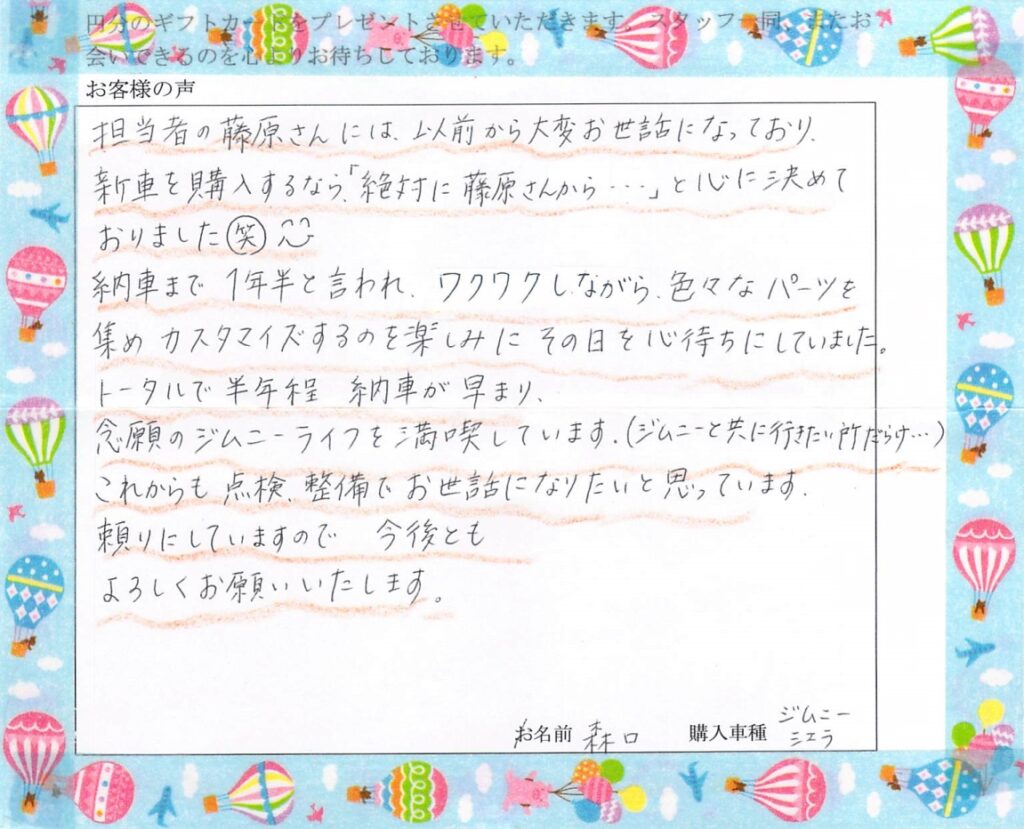 円分のギフトカードをプレゼントさせていただきます。スタッフ一同、またお
会いできるのを心よりお待ちしております。
お客様の声
担当者の藤原さんには、以前から大変お世話になっており、
新車を購入するなら、「絶対に藤原さんから・・・」と心に決めて
おりました(笑)
納車まで 1年半と言われ、ワクワクしながら、色々なパーツを
集め カスタマイズするのを楽しみに その日を心待ちにしていました。
トータルで半年程 納車が早まり、
念願のジムニーライフを満喫しています。(ジムニーと共に行きたい所だらけ…)
これからも点検、整備でお世話になりたいと思っています。
頼りにしていますので 今後とも
よろしくお願いいたします。
お名前 森口 購入車種 ジムニー
シエラ